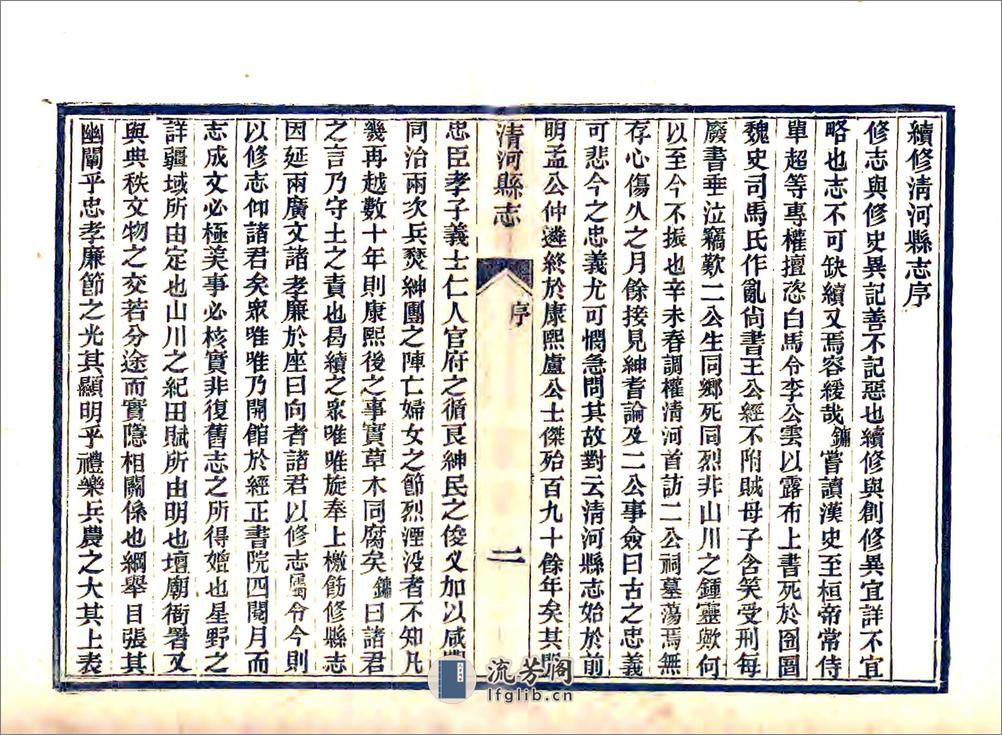 續修清河縣志序
修志與修史異記善不記惡也續修與創修異宜詳不宜
略也志不可缺續又焉容緩哉鏞嘗讀漢史至桓帝常侍
單超等專權擅恣白馬令李公雲以露布上書死於囹圄
魏史司馬氏作亂尙書王公經不附賊母子含笑受刑每
廢書垂泣竊歎二公生同鄉死同烈非山川之鍾靈歟何
以至今不振也辛未春調權清河首訪二公祠墓蕩焉無
存心傷久之月餘接見紳耆論及二公事僉曰古之忠義
可悲今之忠義尤可憫急問其故對云清河縣志始於前
明孟公仲遴終於康熙盧公士傑殆百九十餘年矣其間
清河縣志
序
二
忠臣孝子義士仁人官府之循良紳民之俊乂加以咸豐
同治兩次兵燹紳團之陣亡婦女之節烈湮没者不知凡
幾再越數十年則康熙後之事實草木同腐矣鏞曰諸君
之言乃守土之責也曷續之眾唯唯旋奉上檄飭修縣志
因延兩廣文諸孝廉於座曰向者諸君以修志屬令今則
以修志仰諸君矣眾唯唯乃開館於經正書院四閱月而
志成文必極美事必核實非復舊志之所得嬗也星野之
詳疆域所由定也山川之紀田賦所由明也壇廟衙署又
與典秩文物之交若分途而實隱相關係也綱舉目張其
幽闡乎忠孝廉節之光其顯明乎禮樂兵農之大其上表
流芳閣
lfglib.cn